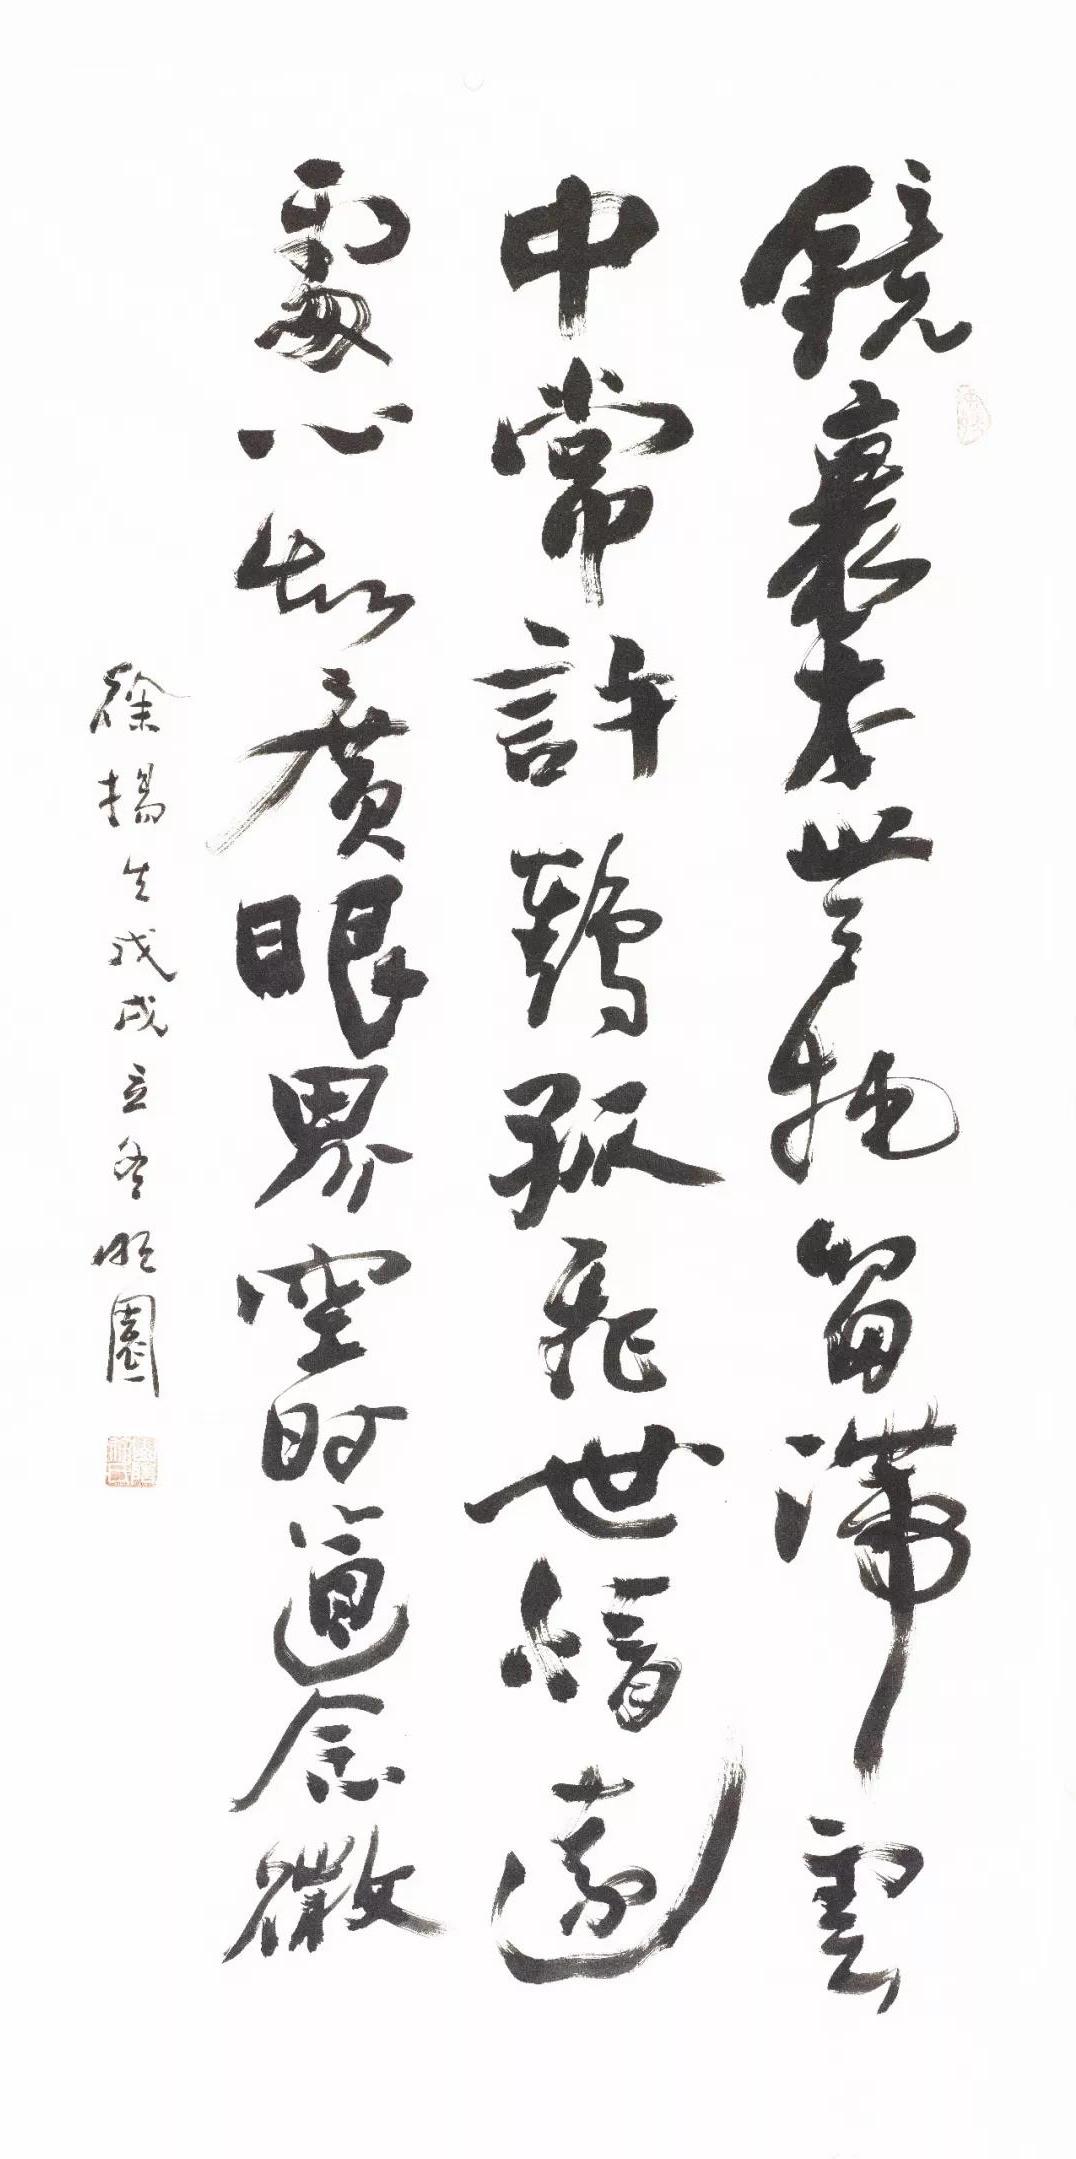 鏡裏本無物留滯雲
中常許鶴孤飛世情遠
處心知廣眼界空時道念微
徐揚生戊戌立冬園